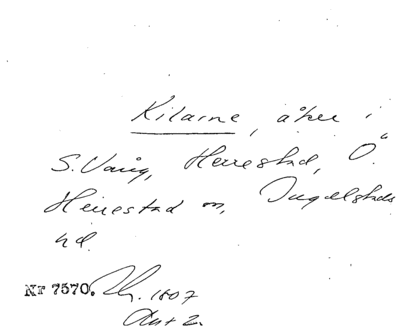 Kilarne, åker i
S. Vång, Herrestad, Ö.
Herrestad sn, Ingelstads
hd.
Nr 7570. 1807
Akt 2.